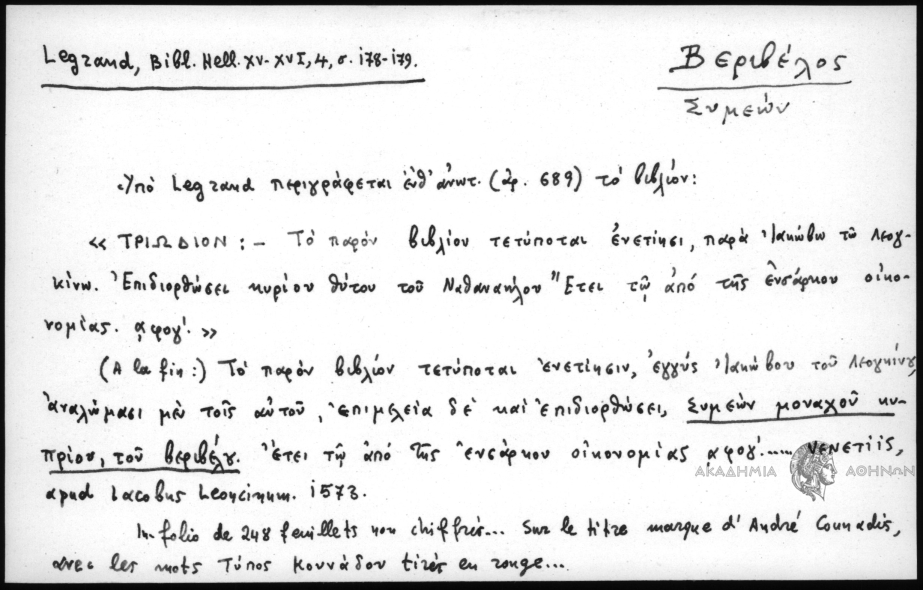 Legrand, Bibl. Hell. XV-XVI, 4, σ. 178-179.
Βεριβέλος
Συμεών
Ὑπό Legrand περιγράφεται ἐνθ' ἀνωτ. (ἀρ. 689) τό βιβλίον:
« ΤΡΙΩΔΙΟΝ : – Τό παρόν βιβλίον τετύποται ἐνετίησι, παρά Ἰακώβω τῶ Λεογ-
κίνω. Ἐπιδιορθώσει κυρίου θύτου τοῦ Ναθαναήλου Ἔτει τῷ ἀπό τῆς ἐνσάρκου οἰκο-
νομίας. ͵αφογ'. »
(A la fin:) Τό παρόν βιβλίον τετύποται ἐνετίησιν, ἐγγύς Ἰακώβου τοῦ Λεογκίνου,
ἀναλώμασι μέν τοῖς αὐτοῦ, ἐπιμελεία δέ καί ἐπιδιορθώσει, Συμεών μοναχοῦ κυ-
πρίου, τοῦ Βεριβέλου. Ἔτει τῷ ἀπό τῆς ἐνσάρκου οἰκονομίας ͵αφογ'...... Venetiis,
apud Iacobus Leoncinum. 1573.
In-folio de 248 feuillets non chiffrés... Sur le titre marque d'André Counadis,
avec les mots Τύπος Κουνάδου tirés en rouge...
ΑΚΑΔΗΜΙΑ ΑΘΗΝΩΝ